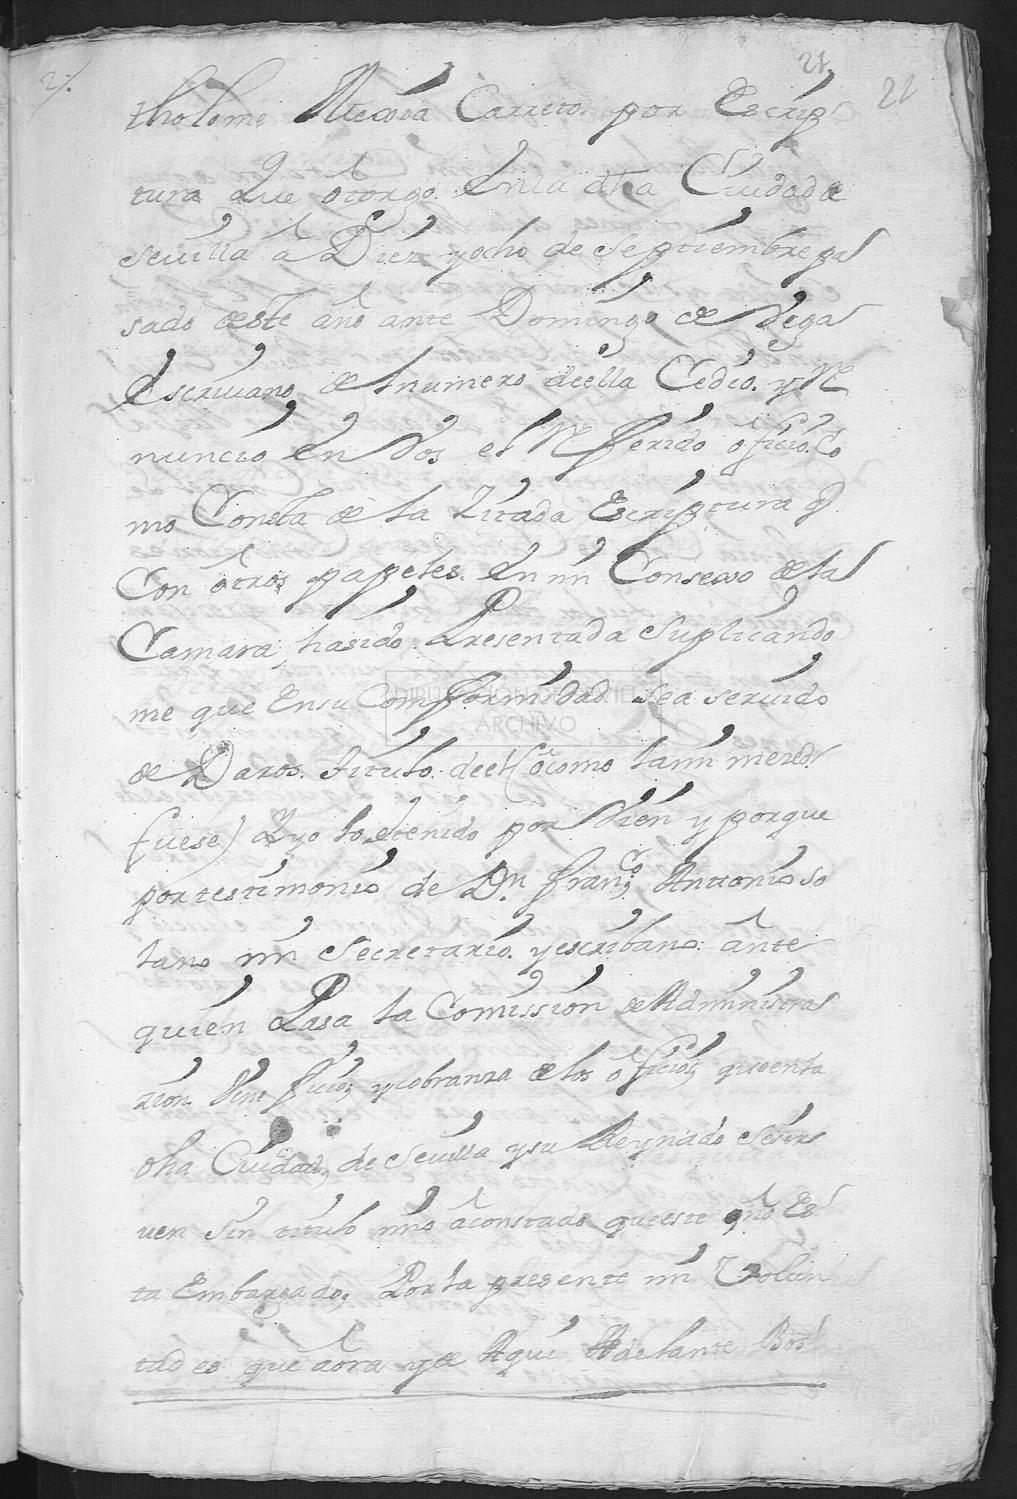 21
2
21
tholome Carreto. por Escrip
tura que otorgo. en la dha Ciudad de
sevilla â Diez y ocho de Septiembre pa
sado deste año ante Domingo de Vega
Escriuano de l numero de ella Cedio. y Re
nuncio en Vos el Referido oficio. Co
mo Consta de la Zitada Escriptura q
Con otros papeles. en mi Consexo de la
Camara, ha sido Presentada Suplicando
me que en su Comformidad Sea seruido
DIPUTACIÓN SEVILLA
ARCHIVO
de Daros. titulo. de el (ô como la mi merd
fuese) e yo lo e tenido por Vien y porque
por testimonio de Dn. Franco Anttonio so
lano mi Secretario. y escribano. ânte
quien Pasa la Comission de Administra
zion Benefficio, y cobranza de los oficios, que en la
dha Ciudad, de Sevilla y su Reynado se sir
uen Sin titulo mio âconstado que este no Es
ta Embargado, Por la presente mi Volun
tad es que âora y de Aqui Adelante Bos